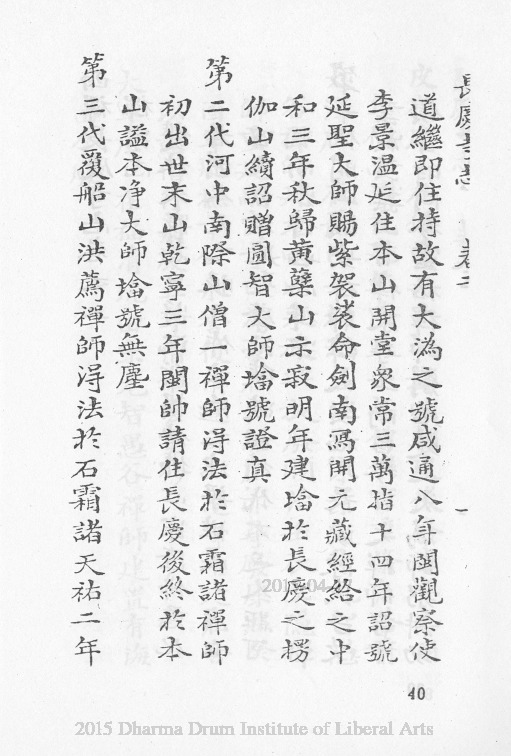 長慶寺志 卷二 一
道繼即住持故有大溈之號咸通八年閩觀察使
李景温延住本山開堂衆常三萬指十四年詔號
延聖大師賜紫袈裟命劍南寫開元藏經給之中
和三年秋歸黃蘗山示寂明年建墖於長慶之楞
伽山續詔贈圓智大師墖號證真
第二代河中南際山僧 禪師淂法於石霜諸禪師
初出世末山乾寧三年閩帥請住長慶後終於本
山謚本净大師墖號無塵
第三代覆船山洪薦禪師淂法於石霜諸天祐二年
40
2015 Dharma Drum Institute of Liberal Arts